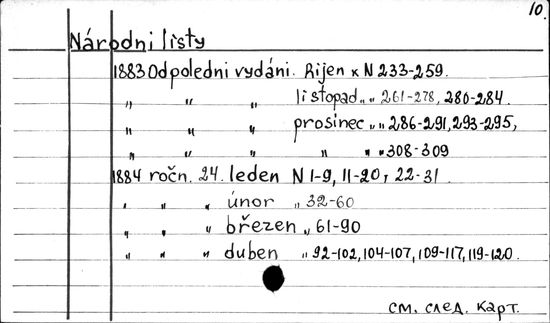 10.
Národni listy
1883 Odpoledni vydáni. Řijen x N 233-259.
" " " listopad " " 261-278, 280-284.
" " " prosinec " " 286-291, 293-295,
" " " " " " 308-309
1884 ročn. 24. leden N 1-9, 11-20, 22-31.
" " " únor " 32-60
" " " březen " 61-90
" " " duben " 92-102, 104-107, 109-117, 119-120.
см. след. карт.